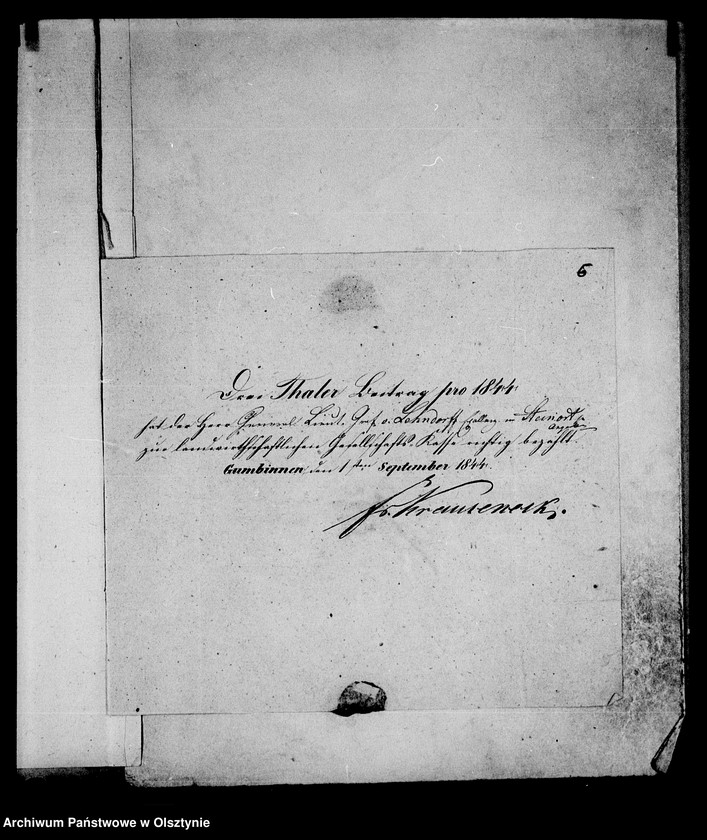 5
Drei Thaler Beitrag pro 1844
hat der Herr General Lieut. Graf v. Lehndorff in Steinort
zur landwirthschaftlichen Gesellschafts-Kasse richtig bezahlt.
Gumbinnen den 1ten September 1844.
Archiwum Państwowe w Olsztynie